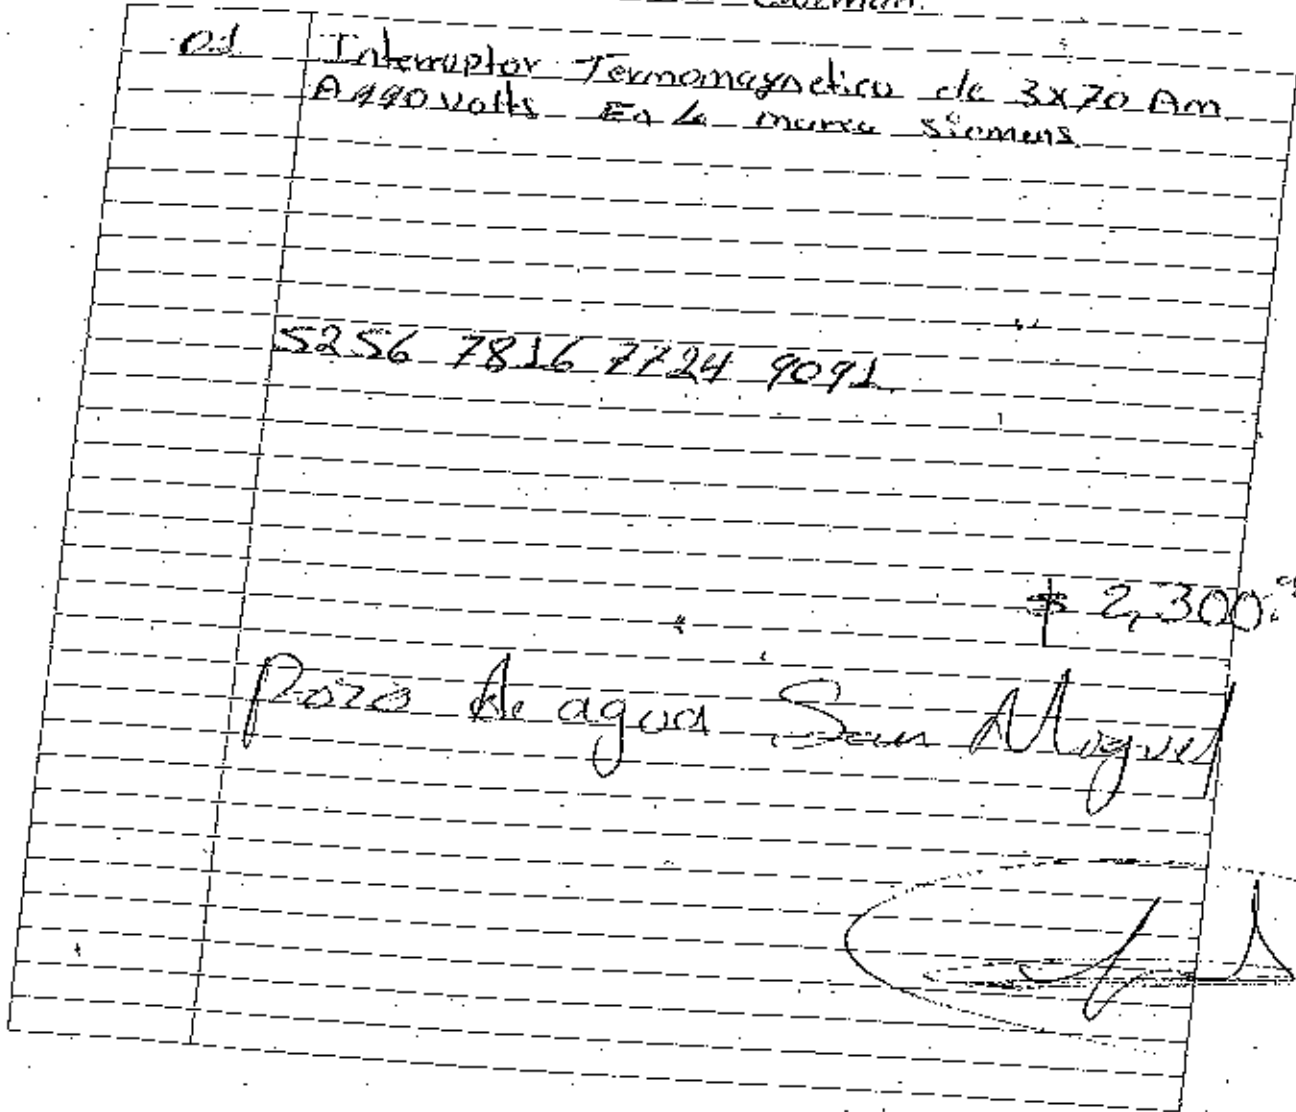 01 Interruptor Termomagnetico de 3x70 Am
A 440 volts En la marca siemens
5256 7816 7724 9091
$ 2,300.
Pozo de agua San Miguel